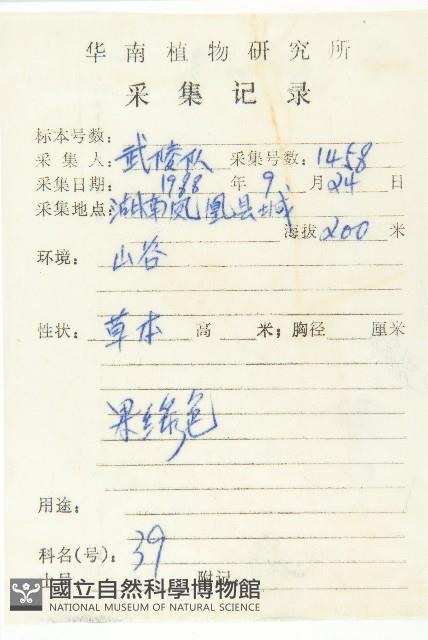 华南植物研究所
采集记录
标本号数：
采集人：武陵队 采集号数：1458
采集日期：1988年9月24日
采集地点：湖南凤凰县城
海拔200米
环境：山谷
性状：草本 高 米；胸径 厘米
果绿色
用途：
科名(号)：39
附记
國立自然科學博物館
NATIONAL MUSEUM OF NATURAL SCIENCE